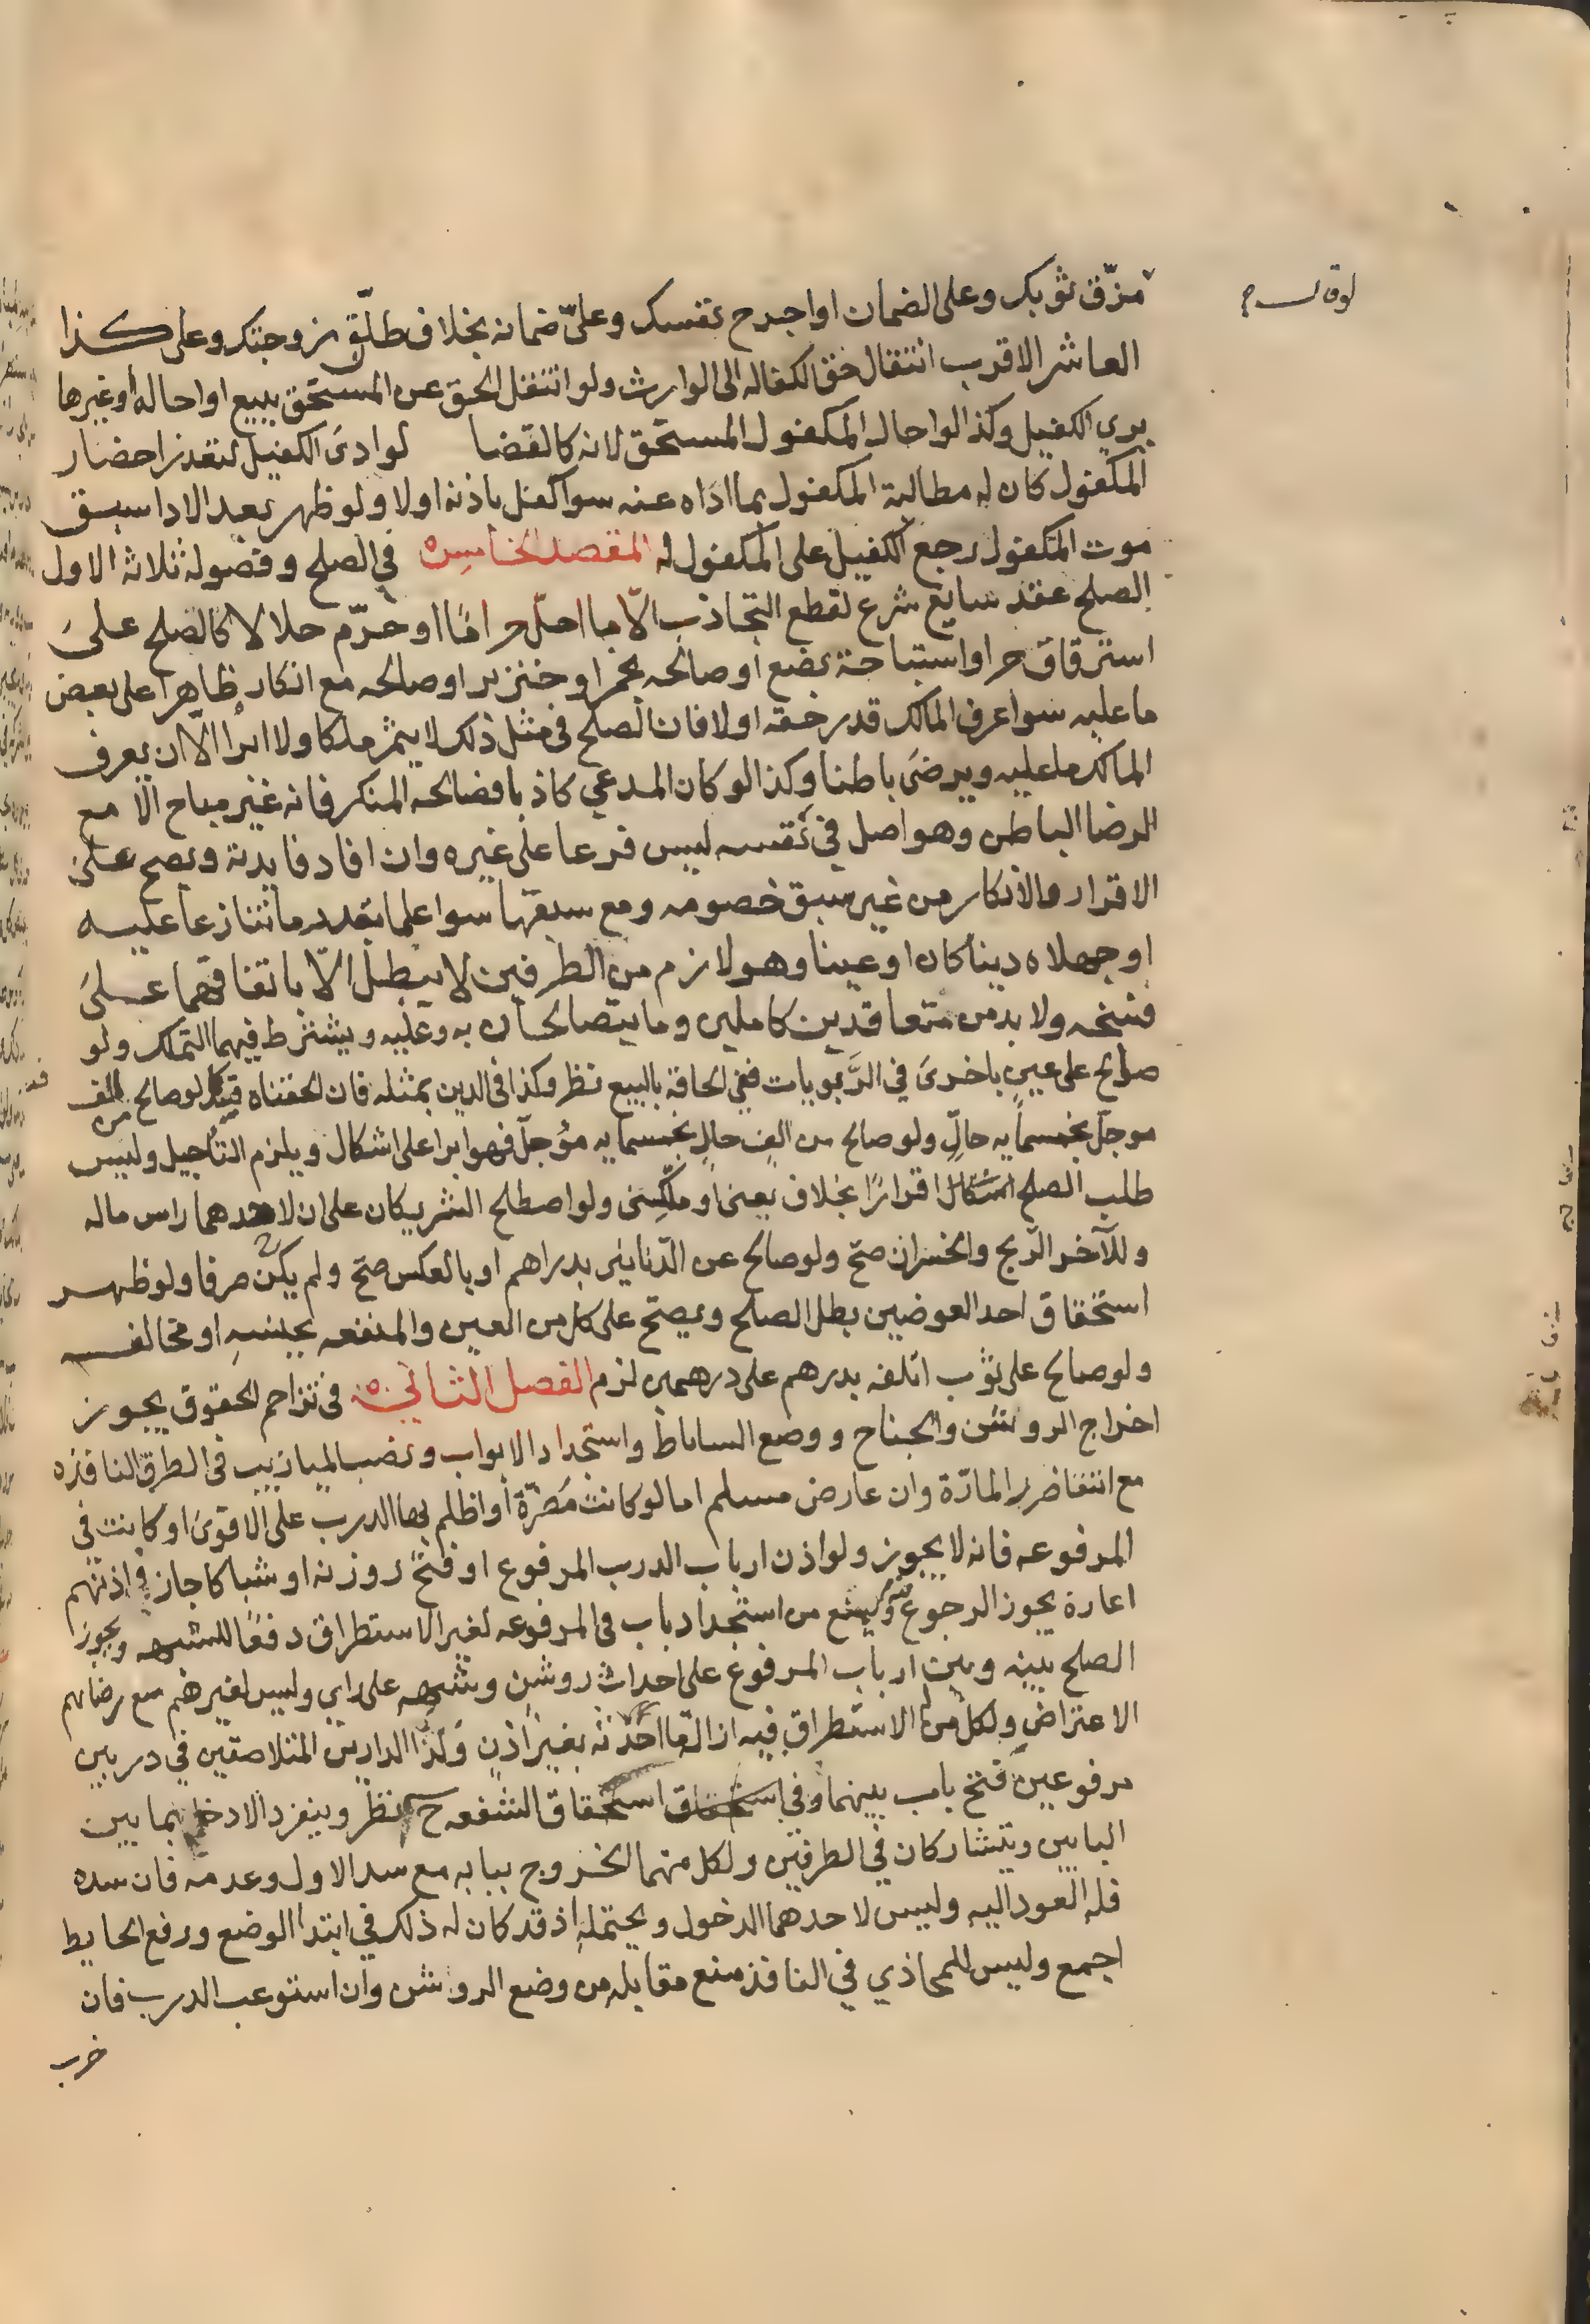 لو قال
مزّق ثوبك وعلى الضمان او اجرح نفسك وعليّ ضمانه بخلاف طلّق زوجتك وعلى كذا
العاشر الاقرب انتقال حق الكفاله الى الوارث ولو انتقل الحق عن المستحق ببيع او احاله أو غيرها
بري الكفيل وكذا لو احال المكفول المستحق لانه كالقضا لو ادى الكفيل لتعذر احضار
المكفول كان له مطالبة المكفول بما اداه عنه سوا كفل باذنه اولا ولو ظهر بعد الادا سبق
موت المكفول رجع الكفيل على المكفول له المقصد الخامس في الصلح وفصوله ثلاثه الاول
الصلح عقد سايغ شرع لقطع التجاذب الّا ما احلّ حرامًا او حرّم حلالا كالصلح على
استرقاق حر او استباحة بضع أو صالحه بخمر او خنزير او صالحه مع انكار ظاهرا على بعض
ما عليه سوا عرف المالك قدر حقه اولا فان الصلح في مثل ذلك لا يثمر ملكا ولا ابرا الّا ان يعرف
المالك ما عليه ويرضى باطنا وكذا لو كان المدعي كاذبا فصالحه المنكر فانه غير مباح الّا مع
الرضا الباطن وهو اصل في نفسه ليس فرعا على غيره وان افاد فايدته ويصح على
الاقرار والانكار من غير سبق خصومه ومع سبقها سوا علما بقدر ما تنازعا عليه
او جهلاه دينا كان او عينا وهو لازم من الطرفين لا يبطل الّا باتفاقهما على
فسخه ولا بد من متعاقدين كاملين وما يتصالحان به وعليه ويشترط فيهما التملك ولو
صالح على عين باخرى في الرَّبويات ففي الحاقه بالبيع نظر وكذا في الدين بمثله فان الحقناه فسد لو صالح من الف
موجلّ بخمسمايه حالّ ولو صالح من الف حال بخمسمايه مؤجلّ فهو ابرا على اشكال ويلزم التأجيل وليس
طلب الصلح اقرارًا بخلاف بعني أو ملّكني ولو اصطلح الشريكان على ان لاحدهما راس ماله
وللآخر الرّبح والخسران صحّ ولو صالح عن الدّنانير بدراهم او بالعكس صحّ ولم يكن صرفا ولو ظهر
استحقاق احد العوضين بطل الصلح ويصحّ على كل من العين والمنفعه بجنسه او مخالفه
ولو صالح على ثوب اتلفه بدرهم على درهمين لزم الفصل الثاني في تزاحم الحقوق يجوز
اخراج الروشن والجناح ووضع الساباط واستجداد الابواب ونصب الميازيب في الطرق النافذه
مع انتفا ضرر المارّة وان عارض مسلم اما لو كانت مضرّة أو اظلم بها الدرب على الاقوى او كانت في
المرفوعه فانه لا يجوز ولو اذن ارباب الدرب المرفوع او فتح روزنه او شباكا جاز واذنهم
اعارة يجوز الرجوع فيه ويمنع من استجداد باب في المرفوعه لغير الاستطراق دفعًا للشبهه ويجوز
الصلح بينه وبين ارباب المرفوع على احداث روشن وشبهه على راي وليس لغيرهم مع رضاهم
الاعتراض ولكل من له الاستطراق فيه ازالة ما احدثه بغير اذن ولذي الدارين المتلاصقين في دربين
مرفوعين فتح باب بينهما وفي استحقاق الشفعه ح نظر وينفرد الادخل بما بين
البابين ويتشاركان في الطرفين ولكل منهما الخروج ببابه مع سد الاول وعدمه فان سده
فله العود اليه وليس لاحدهما الدخول ويحتمله اذ قد كان له ذلك في ابتدا الوضع ورفع الحايط
اجمع وليس للمحاذي في النافذ منع مقابله من وضع الروشن وان استوعب الدرب فان
خرب